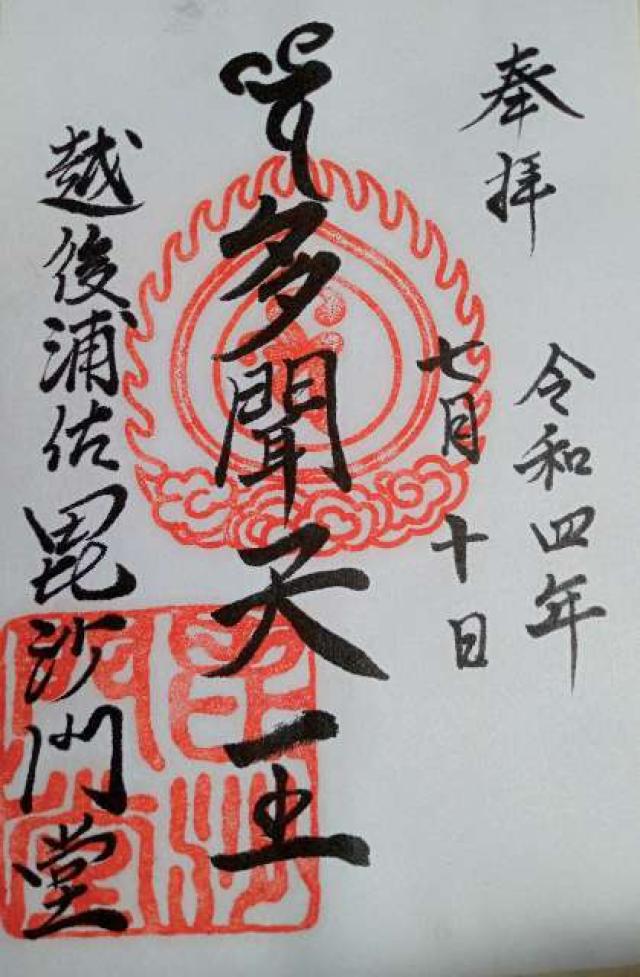 奉拝
令和四年
七月十日
多聞天王
越後浦佐毘沙門堂